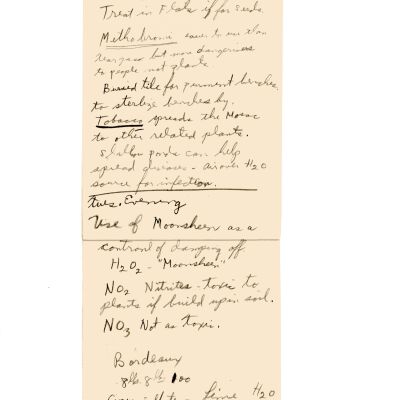 Treat in Flats if for seeds
Methobromi easier to use than
Teargas but more dangerous
to people not plants.
Buried tile for permenent benches
to sterlize benches by.
Tobacco spreads the Mosac
to other related plants.
Shallow ponds can help
spread diseases - H2O
source for infection.
Tues. Evening
Use of Moonsheen as a
control of damping off
H2O2 - "Moonsheen"
NO2 Nitrites - toxic to
plants if build up in soil.
NO3 Not as toxic.
Bordeaux
8 lb. 8 lb 100
Lime H2O